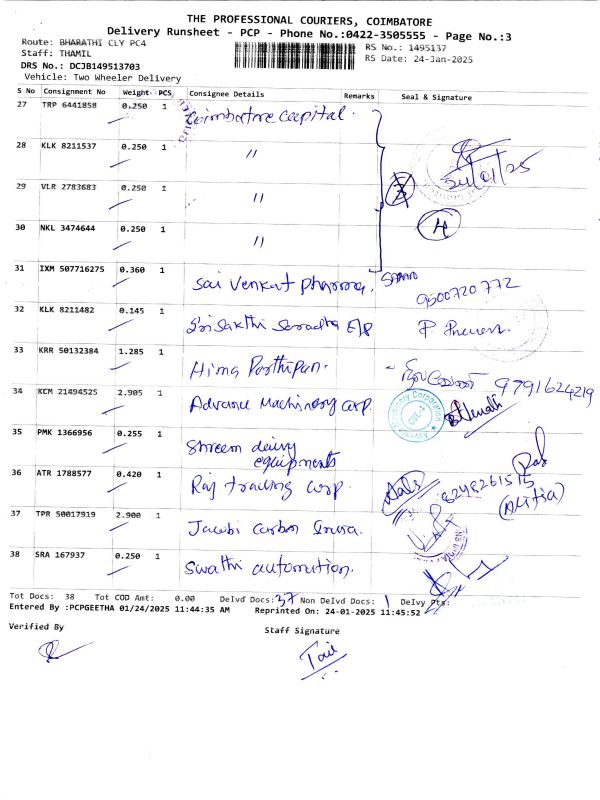 THE PROFESSIONAL COURIERS, COIMBATORE
Delivery Runsheet - PCP - Phone No.:0422-3505555 - Page No.:3
Route: BHARATHI CLY PC4
RS No.: 1495137
Staff: THAMIL
RS Date: 24-Jan-2025
DRS No.: DCJB149513703
Vehicle: Two Wheeler Delivery
S No Consignment No Weight PCS Consignee Details Remarks Seal & Signature
27 TRP 6441858 0.250 1 Coimbatore capital.
28 KLK 8211537 0.250 1 //
24/01/25
29 VLR 2783683 0.250 1 //
30 NKL 3474644 0.250 1 // 4
31 IXM 507716275 0.360 1 Sai Venkat pharma.
9500720772
32 KLK 8211482 0.145 1 Sri Sakthi
33 KRR 50132384 1.285 1 Hima Parthipan.
9791624219
34 KCM 21494525 2.905 1 Advance Machinery Corp.
35 PMK 1366956 0.255 1 Shreem
equipments
36 ATR 1788577 0.420 1 Raj trading Corp.
8248261515
37 TPR 50017919 2.900 1 Jacobi Carbon
38 SRA 167937 0.250 1 Swathi automation.
Tot Docs: 38 Tot COD Amt: 0.00 Delvd Docs: 37 Non Delvd Docs: 1 Delvy Pts:
Entered By :PCPGEETHA 01/24/2025 11:44:35 AM Reprinted On: 24-01-2025 11:45:52
Verified By
Staff Signature